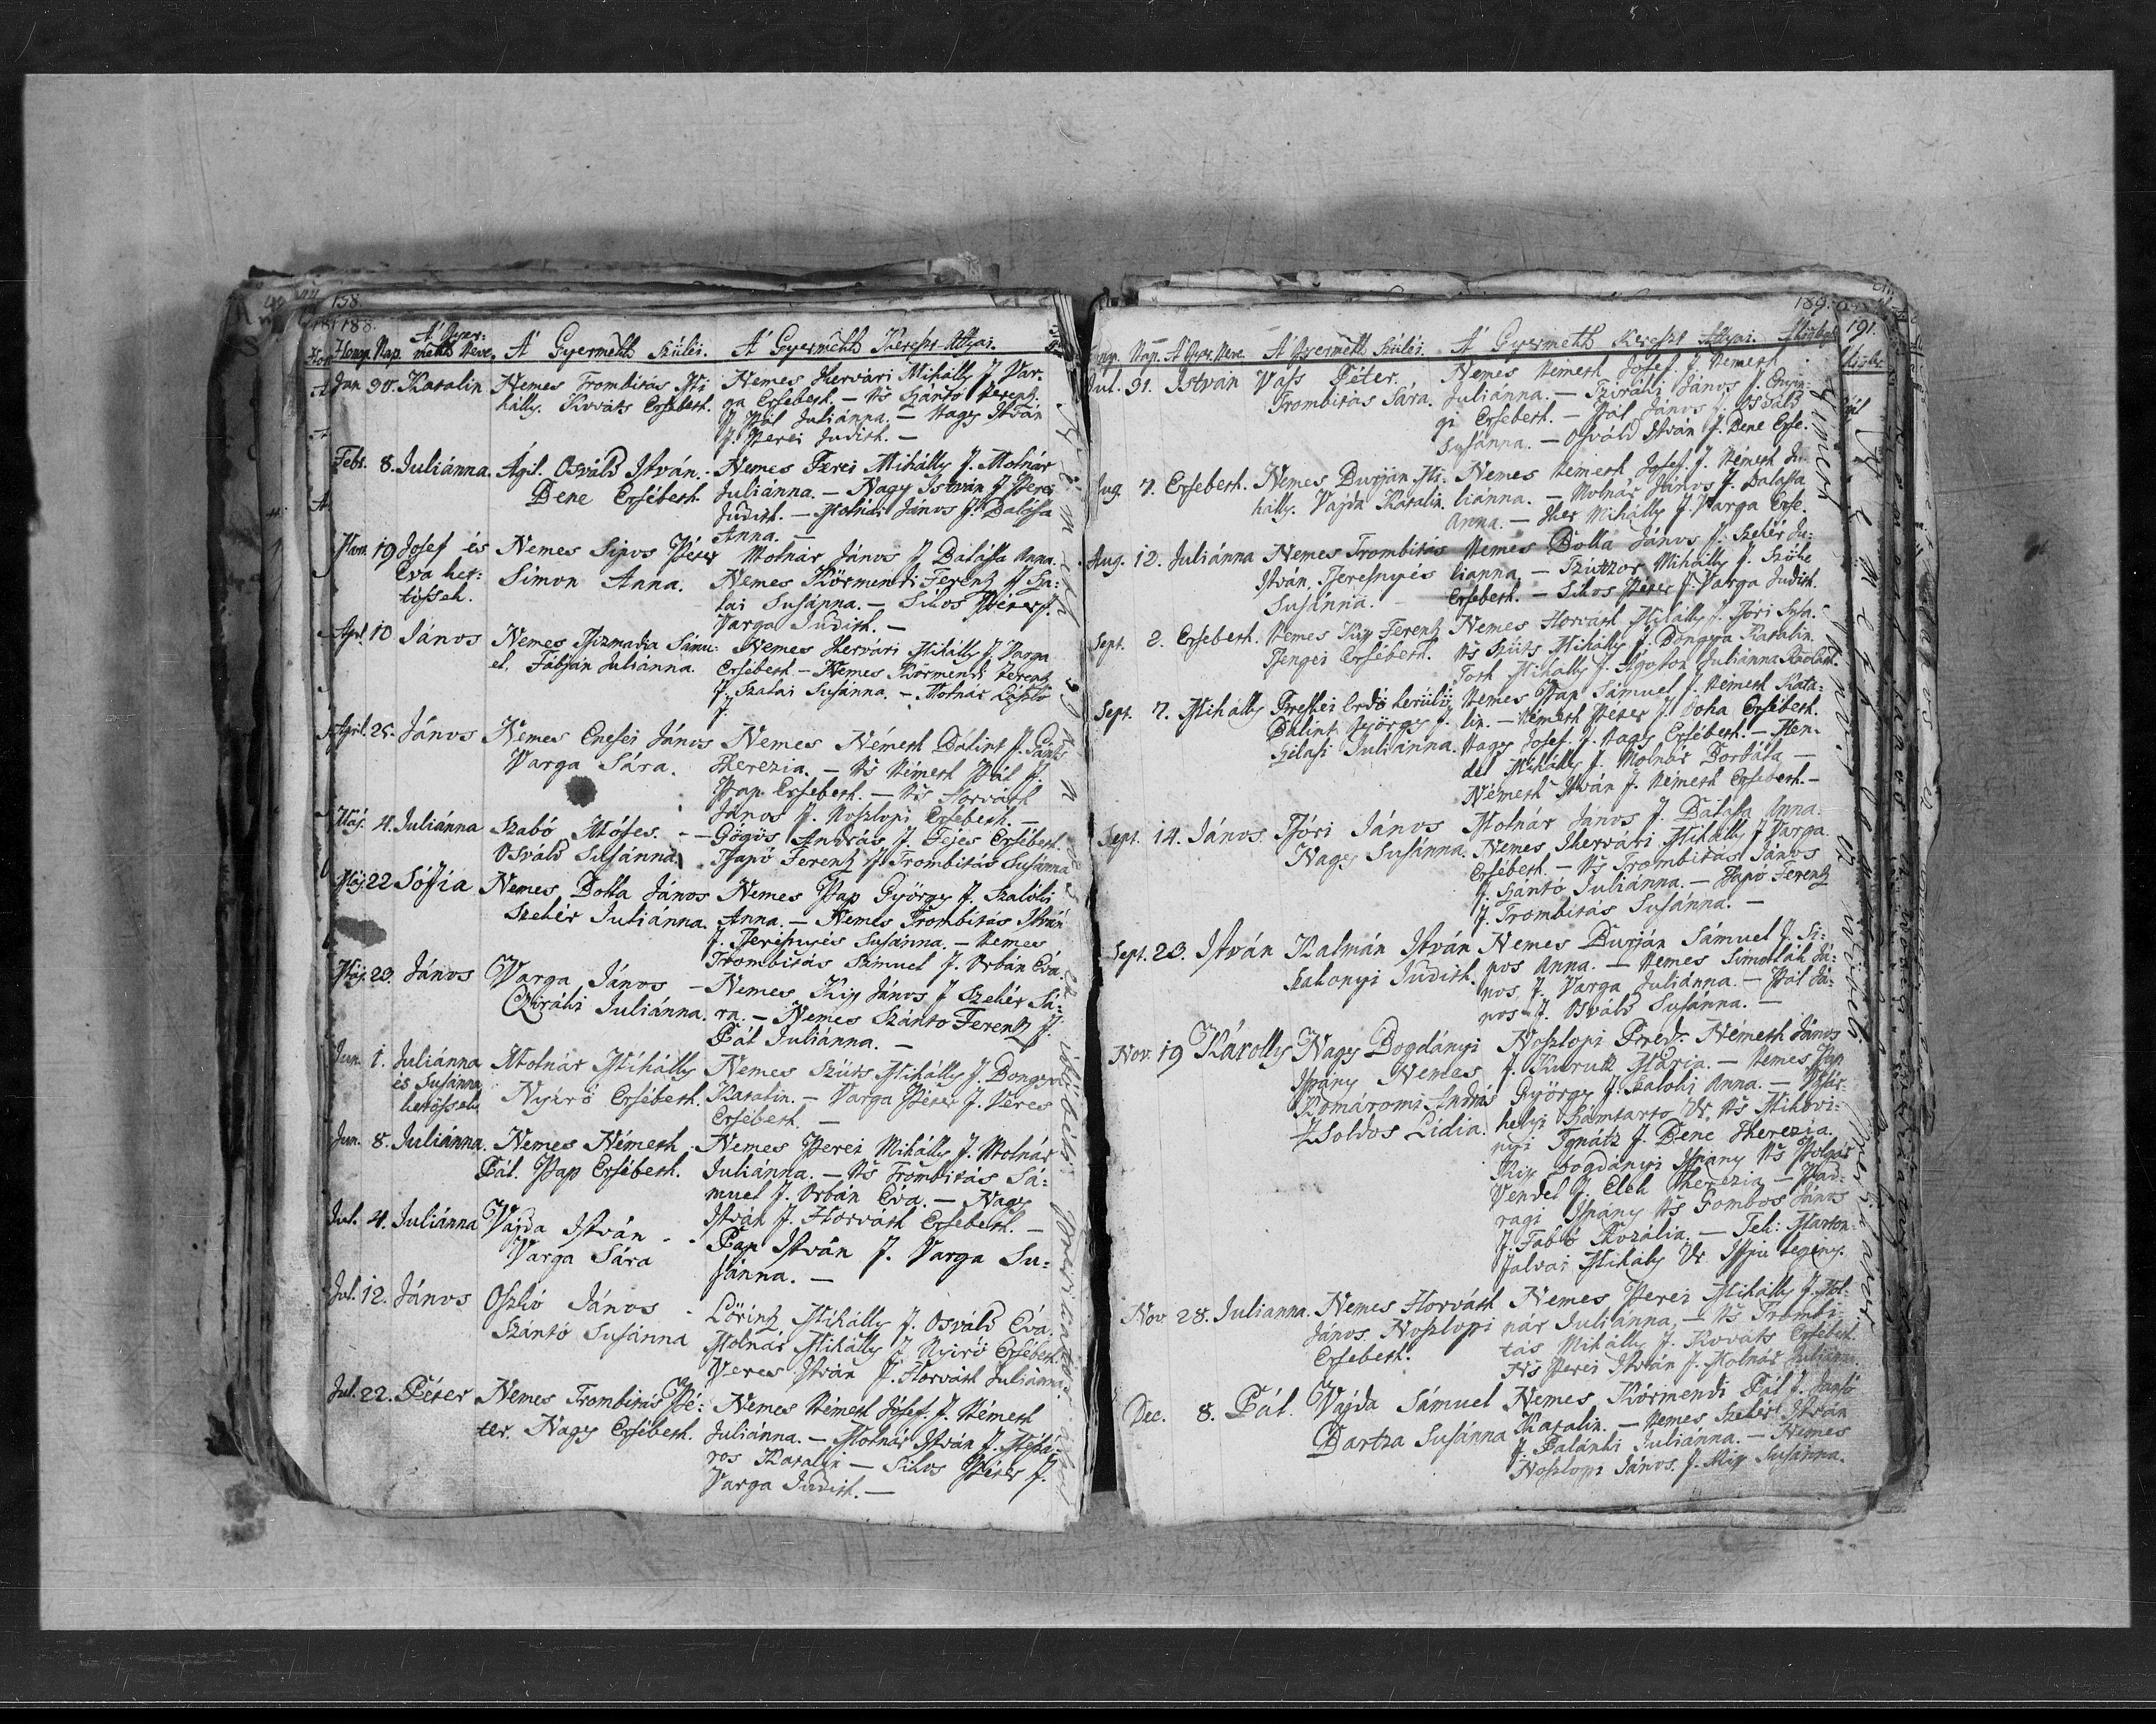 158.
188.
Hónap Nap. A' Gyer-
mekk Neve. A' Gyermekk Szülei. A' Gyermekk Kereszt Attyai.
Jan. 30. Katalin Nemes Trombitás Mi
hálly. Kováts Ersébeth.
Nemes Hervári Mihálly J. Var-
ga Ersébeth. — Ns Szántó Ferentz
J. Pál Juliánna. — Nagy István
J. Perei Judith. —
Febr. 8. Juliánna. Osváld István.
Bene Ersébeth
Nemes Perei Mihálly J. Molnár
Juliánna. — Nagy István J. Perei
Judith. — Molnár János J. Balassa
Anna. —
Mart. 19 Josef és
Eva ket-
tőssek.
Nemes Sipos Péter
Simon Anna.
Molnár János J. Balassa Anna.
Nemes Körmendi Ferentz J. Sza-
lai Susánna. — Sikos Péter J.
Varga Judith. —
Apr. 10 János Nemes Tsizmadia Sámu-
el. Fábján Juliánna.
Nemes Hervári Mihálly J. Varga
Ersébeth — Nemes Körmendi Ferentz
J. Szalai Susánna. — Molnár
J.
April. 25. János Nemes Enesei János
Varga Sára.
Nemes Németh Bálint J.
Therezia. — Ns Németh Pál J.
Pap Ersébeth. — Ns Horváth
János J. Noszlopi Ersébeth. —
Máj. 4. Juliánna Szabó Móses. —
Osváld Susánna.
Gögös András J. Fejes Ersébeth.
Tsapó Ferentz J. Trombitás Susánna
Máj. 22 Sófia Nemes Botka János
Szekér Juliánna.
Nemes Pap György J. Szalóki
Anna. — Nemes Trombitás István
J. Tserésnyés Susánna. — Nemes
Trombitás Sámuel J. Orbán Éva.
Máj. 23. János Varga János —
Cziráki Juliánna.
Nemes Kip János J. Szekér Sá-
ra. — Nemes Szánto Ferentz J.
Pál Juliánna. —
Jun. 1. Juliánna
és Susánna
kettőssek
Molnár Mihálly
Nyirő Ersébeth.
Nemes Szüts Mihálly J. Dongya
Katalin. — Varga Péter J. Veres
Ersébeth. —
Jun. 8. Juliánna. Nemes Németh
Pál. Pap Ersébeth.
Nemes Perei Mihálly J. Molnár
Juliánna. — Ns Trombitás Sá-
muel J. Orbán Éva. — Nagy
István J. Horváth Ersébeth. —
Jul. 4. Juliánna Vajda István. -
Varga Sára
Pap István J. Varga Su-
sánna. —
Jul. 12. János Oszkó János -
Szántó Susánna
Lőrintz Mihálly J. Osváld Éva.
Molnár Mihálly J. Nyirő Ersébeth.
Veres István J. Horváth Juliánna.
Jul. 22. Péter Nemes Trombitás Pé-
ter. Nagy Ersébeth.
Nemes Németh Jósef J. Németh
Juliánna. — Molnár István J. Mészá-
ros Katalin — Sikos Péter J.
Varga Judith. —
189.
191.
Nap. A' Gyer. Neve. A' Gyermekk Szülei. A' Gyermekk Kereszt Attyai.
Jul. 31. István Vass Péter.
Trombitás Sára.
Nemes Németh Josef. J. Németh
Juliánna. — Cziráki János J.
gi Ersébeth. — Pál János J. Osváld
Susánna. — Osváld István J. Bene Erse.
Aug. 7. Ersébeth. Nemes Burján Mi-
hálly. Vajda Katalin.
Nemes Németh Josef. J. Németh Ju-
liánna. — Molnár János J. Balassa
Anna. — Mihálly J. Varga Erse.
Aug. 12. Juliánna Nemes Trombitás
István. Tseresnyés
Susánna. -
Nemes Botka János J. Szekér Ju-
liánna. — Mihálly J. Szőke
Ersébeth. — Sikos Péter J. Varga Judith.
Sept. 2. Ersébeth. Nemes Kip Ferentz
Tsengei Ersébeth.
Nemes Horváth Mihálly J. Sysa.
Ns Szüts Mihálly J. Dongya Katalin.
Toth Mihálly J. Ágoston Juliánna
Sept. 7. Mihálly Erdő kerülő
Bálint György J.
Szilasi Juliánna.
Nemes Pap Sámuel J. Németh Kata-
lin. — Németh Péter J. Ersébeth.
Nagy Josef J. Nagy Ersébeth. — Men-
del Mihálly J. Molnár Borbára —
Németh István J. Németh Ersébeth. —
Sept. 14. János Tsóri János
Nagy Susánna.
Molnár János J. Balassa Anna.
Nemes Hervári Mihálly J. Varga
Ersébeth. — Ns Trombitás János
J. Szántó Juliánna. — Tsapó Ferentz
J. Trombitás Susánna. —
Sept. 23. István Kalmán István
Szakonyi Judith.
Nemes Burján Sámuel J. Si-
pos Anna. — Nemes Simotsák Já-
nos J. Varga Juliánna. — Pál Já-
nos J. Osváld Susánna. —
Nov. 19 Károlly Nagy Bogdányi
Ispány Nemes
Komáromi András
Zsoldos Lidia.
Noszlopi Pred. Németh János
J. Kurutz Mária. — Nemes Pap
György J. Szalóki Anna. — Vásár-
helyi Számtartó Ur. Ns Mikovi-
nyi Ignátz J. Bene Therezia.
Kip bogdányi Ispány Ns Polgár
Vendel J. Elek Therezia — Pad-
ragi Ispány Ns Gombos János
J. Fabó Rozália. — Tek: Marton-
falvai Mihály Ur Ifjú legény.
Nov 28. Julianna. Nemes Horváth
János. Noszlopi
Ersébeth.
Nemes Perei Mihálly J. Mol-
nár Juliánna. — Ns Trombi-
tás Mihálly J. Kováts Ersébeth.
Ns Perei István J. Molnár Juliánna.
Dec. 8. Pál. Vajda Sámuel
Bartza Susánna
Nemes Körmendi Pál J. Jankó
Katalin. — Nemes Szekér István
J. Palánki Juliánna. — Nemes
Noszlopi János. J. Kip Susánna.